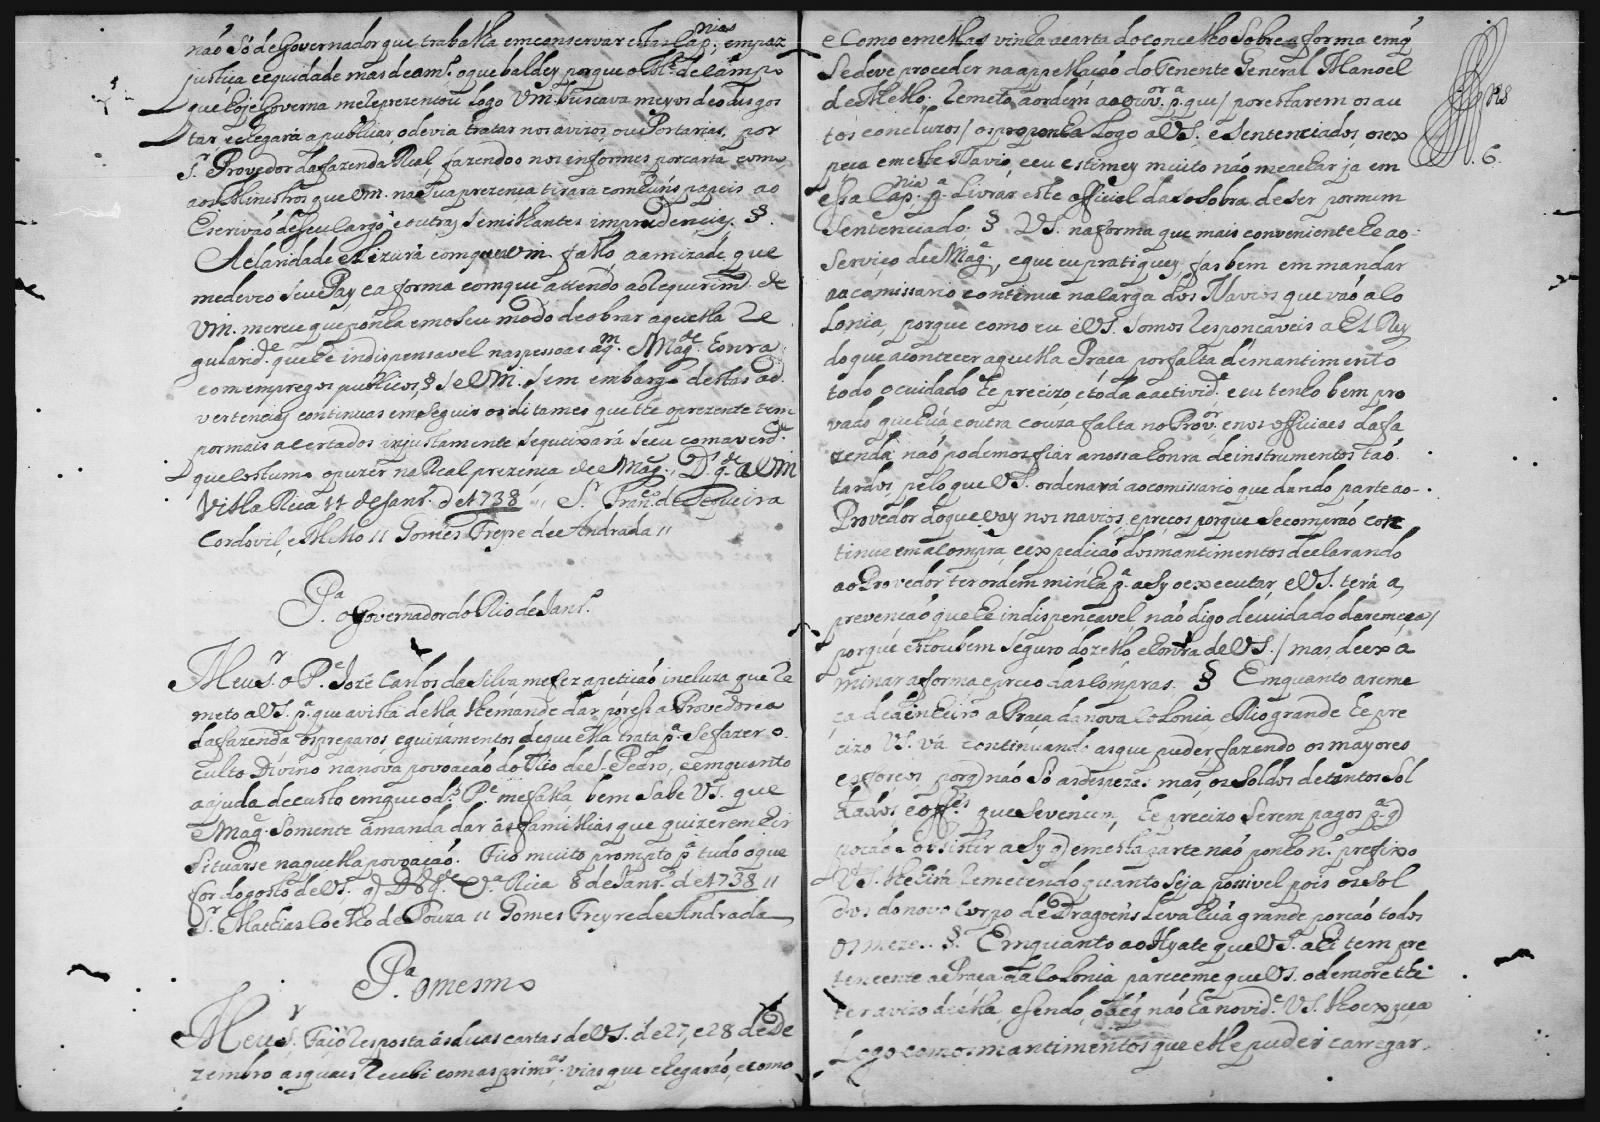 não só de Governador que trabalha em conservar estas Cap.nias em paz
justiça e equidade mas de am.º o que baldey porque o M.e de Campo
que hoje Governa me Reprezentou logo Vm. buscava meyos de o disgos
tar, e chegará a publicas, o devia tratar nos avizos ou Portarias, por
S.r Provedor da fazenda Real, fazendo o nos informes por carta como
aos Ministros que Vm. na sua prezença tirara com huñs papeis ao
Escrivão de seu cargo, e outras semilhantes imprudencias. §.
A claridade e Lizura com que a Vm. fallo, a amizade que
me deveo seu Pay e a forma com que attendo ao Requirim.to de
Vm. merece que ponha em o seu modo de obrar aquella Re
gularid.e que he indispensavel nas pessoas a q.m S Mag.de honra
com empregos publicos, § Se Vm. sem embargo destas ad
vertencias continuar em seguir os ditames que thé o prezente tem
por mais acertados injustamente se queixará se eu com a verd.e
que costumo opuzer na Real prezença de S Mag.e, D.s g.de a Vm
Villa Rica 11 de Jan.ro de 1738 ,, S.r Fran.co de Sequeira
Cordovil, e Mello ,, Gomes Freyre de Andrada ,,
P.a
o Governador do Rio de Jan.ro
Meu S.r o P.e Jozé Carlos da Silva me fez a petição incluza que Re
meto a VS. p.a que a vista della lhe mande dar por essa Provedoria
da fazenda os preparos, e guizamentos de que ella trata p.a se fazer o
culto Divino na nova povoação do Rio de S. Pedro, e emquanto
a ajuda de custo em que o d.º P.e me falla bem sabe VS. que
S Mag. somente a manda dar ás familias que quizerem hir
situarse naquella povoação. Fico muito prompto p.a tudo o que
for do gosto de VS. q D.s g.de V.a Rica 8 de Jan.ro de 1738 ,,
S.r Mathias Coelho de Souza ,, Gomes Freyre de Andrada
P.a o mesmo
Meu S.r Faço resposta ás duas cartas de VS. de 27, e 28 de De
zembro as quaes Recebi com as prim.ras vias que chegarão, e como
e como em ellas vinha a carta do Concelho sobre a forma em q̃
se deve proceder na appellação do Tenente General Manoel
de Mello. Remeto a ordem ao Ouv.or p.a que / por estarem os au
tos concluzos / os proponha logo a VS. e sentenciados, os ex
peça em este Navio, e eu estimey muito não me achar já em
essa Cap.nia p.a Livrar este official da sosobra de ser por mim
Sentenciado. § VS. na forma que mais conveniente he ao
Serviço de S Mag.e, e que eu pratiquey, faz bem em mandar
a comissario continue na larga dos Navios que vão a Co
lonia, porque como eu e VS. somos Responçaveis a El Rey
do que acontecer aquella Praça por falta de mantimento
todo o cuidado he precizo, e toda a activid.e e eu tenho bem pro
vado que huá e outra couza falta no Prov.or e nos officiaes da fa
zenda não podemos fiar a nossa honra de instrumentos tão
tardos, pelo que VS. ordenará ao comissario que dando parte ao
Provedor do que vay nos navios, e preços porque se comprão con
tinue em a compra, e expedição dos mantimentos declarando
ao Provedor ter ordem minha p.a assy o executar, e VS. terá a
prevenção que he indispençavel, não digo de cuidado da remeça /
porque estou bem seguro do zello, e honra de VS. / mas de exa
minar a forma, e preço das compras. § Emquanto a reme
ça de dinheiro a Praça da nova Colonia, e Rio grande he pre
cizo VS. vá continuando as que puder, fazendo os mayores
esforços, porq̃ não só as despezas mas os soldos de tantos Sol
dados e off.es que se vencem, he precizo serem pagos p.a q̃
possão subsistir assy q̃ em esta parte não ponho n.º prefixo
VS. lhe hirá Remetendo quanto seja possivel pois os sol
dos do novo Corpo de Dragoens leva huá grande porção todos
os mezes. §. Emquanto ao Hyate que VS.a ahi tem per
tencente a Praça da Colonia pareceme que VS. o demore thé
ter avizo della, e sendo, o de q não há novid.e VS. lho expeça
Logo com os mantimentos que elle puder carregar.
118
6.